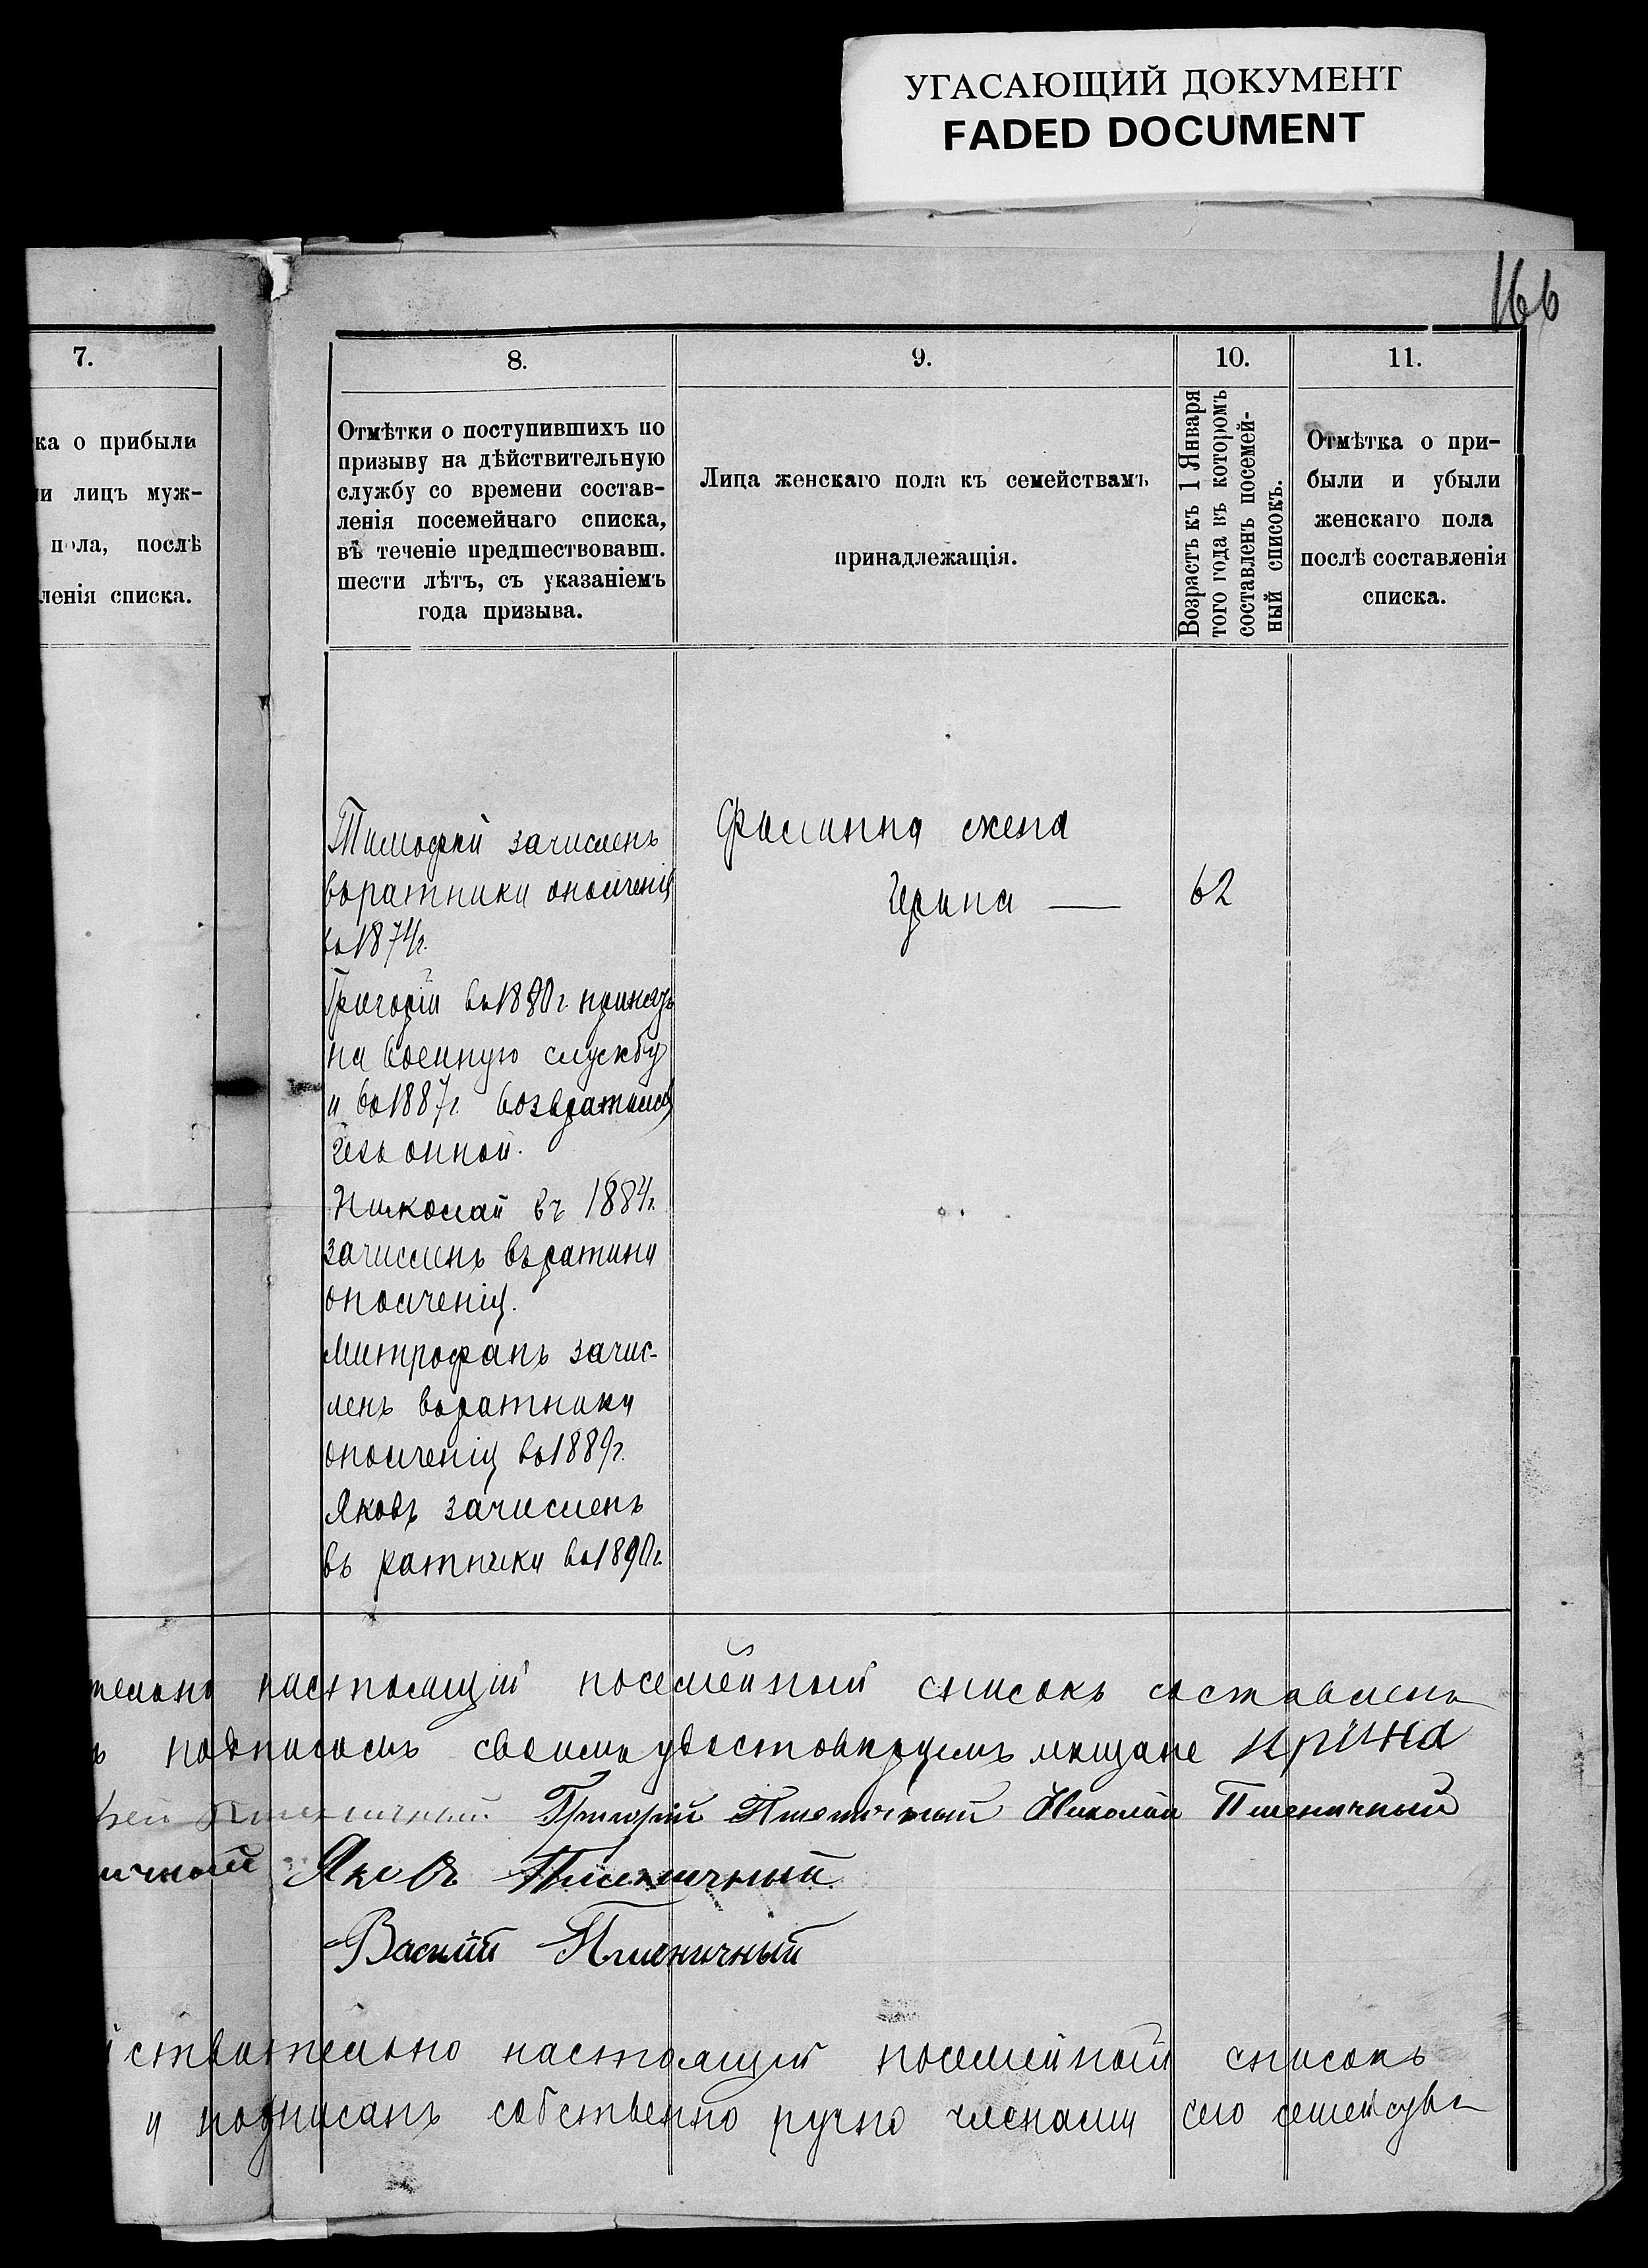 УГАСАЮЩИЙ ДОКУМЕНТ
FADED DOCUMENT
166
7.
ка о прибыли
и лицъ муж-
пола, послѣ
ленія списка.
8.
Отмѣтки о поступившихъ по
призыву на дѣйствительную
службу со времени состав-
ленія посемейнаго списка,
въ теченіе предшествовавш.
шести лѣтъ, съ указаніемъ
года призыва.
9.
Лица женскаго пола къ семействамъ
принадлежащія.
10.
Возрастъ къ 1 Января
того года въ которомъ
составленъ посемей-
ный списокъ.
11.
Отмѣтка о при-
были и убыли
женскаго пола
послѣ составленія
списка.
Тимофей зачисленъ
въ ратники ополченія
въ 1874 г.
Григорій въ 1880 г. принятъ
на военную службу
и въ 1887 г. возвратился
онной.
Николай въ 1884 г.
зачисленъ въ ратники
ополченія.
Митрофанъ зачис-
ленъ въ ратники
ополченія въ 1889 г.
Яковъ зачисленъ
въ ратники въ 1890 г.
Филиппа жена
Ирина —
62
тельно настоящій посемейный списокъ составленъ
подписомъ своимъ удостовѣряемъ мещане Ирина
фей Пшеничный Григорій Пшеничный Николай Пшеничный
ичный Яковъ Пшеничный
Василій Пшеничный
ствительно настоящій посемейный списокъ
и подписанъ собственно ручно членами сего семейства